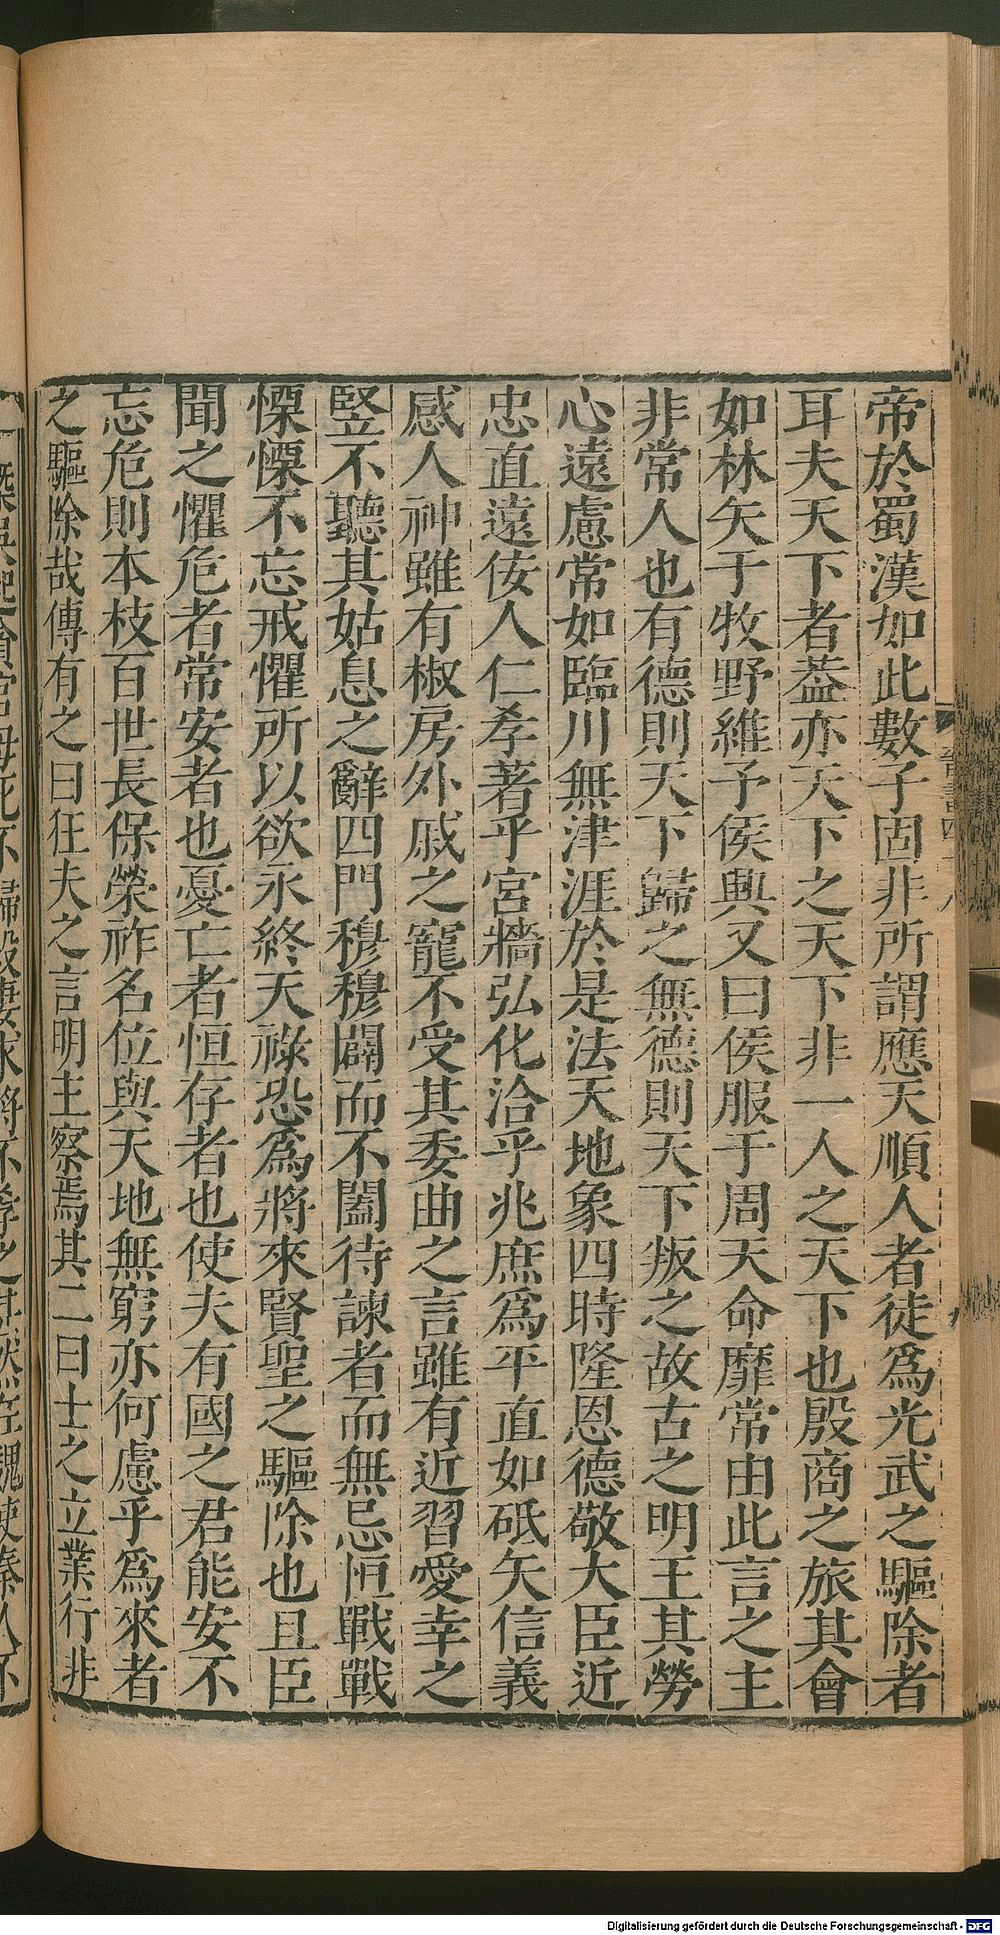 帝於蜀漢如此數子固非所謂應天順人者徒爲光武之驅除者
耳夫天下者葢亦天下之天下非一人之天下也殷商之旅其會
如林矢于牧野維予侯興又曰侯服于周天命靡常由此言之主
非常人也有德則天下歸之無德則天下叛之故古之明王其勞
心遠慮常如臨川無津涯於是法天地象四時隆恩德敬大臣近
忠直遠佞人仁孝著乎宮牆弘化洽乎兆庶爲平直如砥矢信義
感人神雖有椒房外戚之寵不受其委曲之言雖有近習愛幸之
竪不聽其姑息之辭四門穆穆闢而不闔待諫者而無忌恒戰戰
慄慄不忘戒懼所以欲永終天祿恐爲將來賢聖之驅除也且臣
聞之懼危者常安者也憂亡者恒存者也使夫有國之君能安不
忘危則本枝百世長保榮祚名位與天地無窮亦何慮乎爲來者
之驅除哉傳有之曰狂夫之言明主察焉其二曰士之立業行非
Digitalisierung gefördert durch die Deutsche Forschungsgemeinschaft - DFG